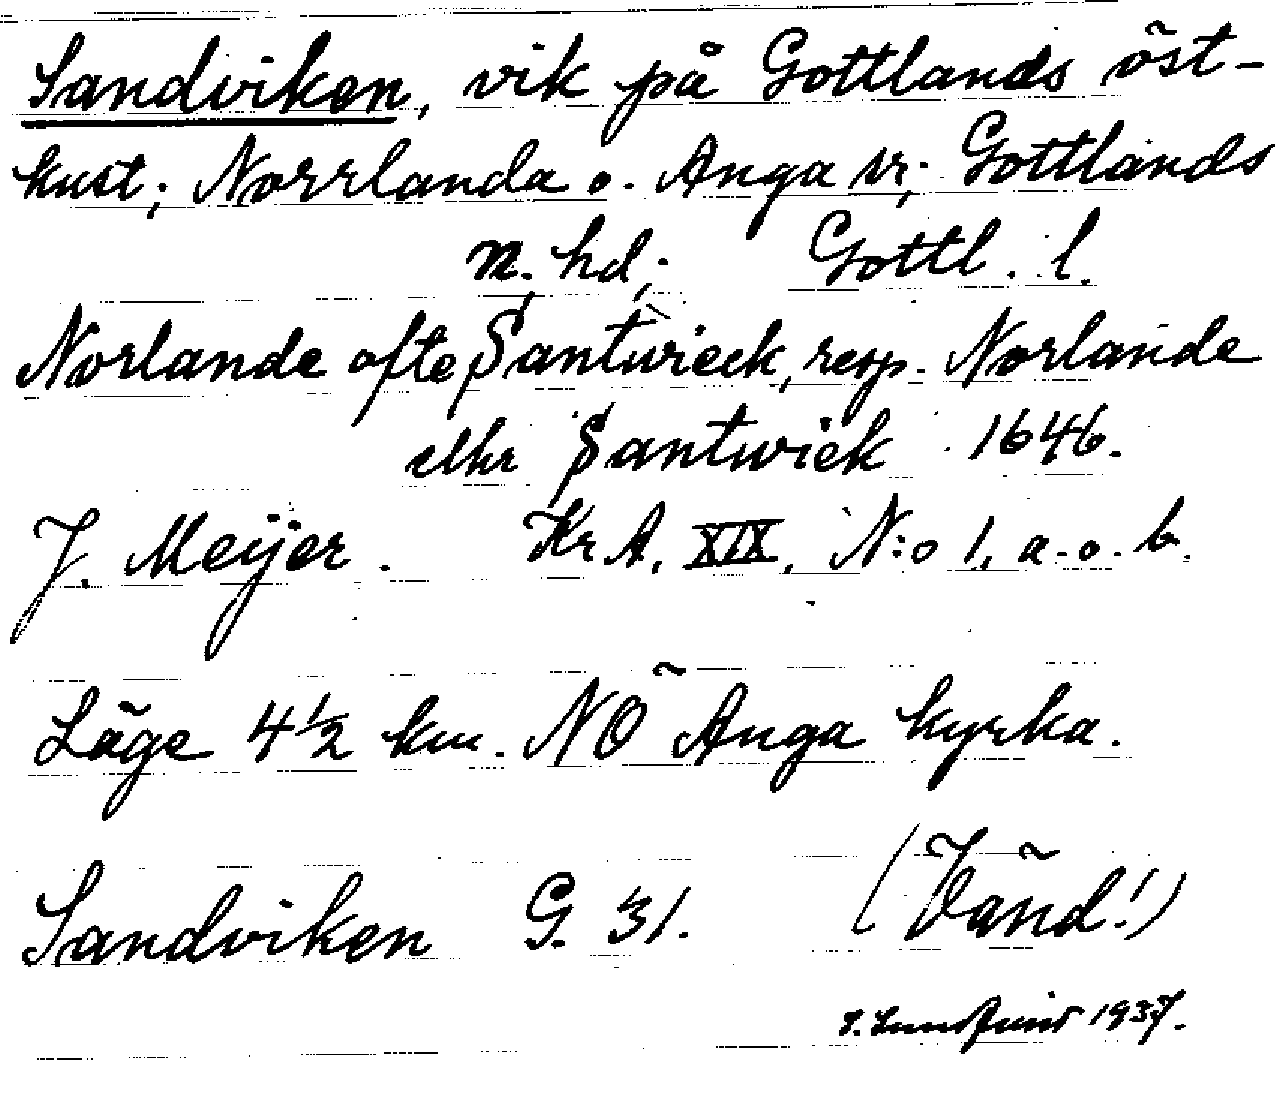 Sandviken, vik på Gottlands öst-
kust; Norrlanda o. Anga sr; Gottlands
n. hd; Gottl. l.
Norlande ofte Santwieck, resp. Norlande
eller Santwiek 1646.
J. Meijer. Kr A, XIX, N:o 1, a.o.b.
Läge 4 1/2 km. NÖ Anga kyrka.
Sandviken G. 31. (Vänd!)
1937.